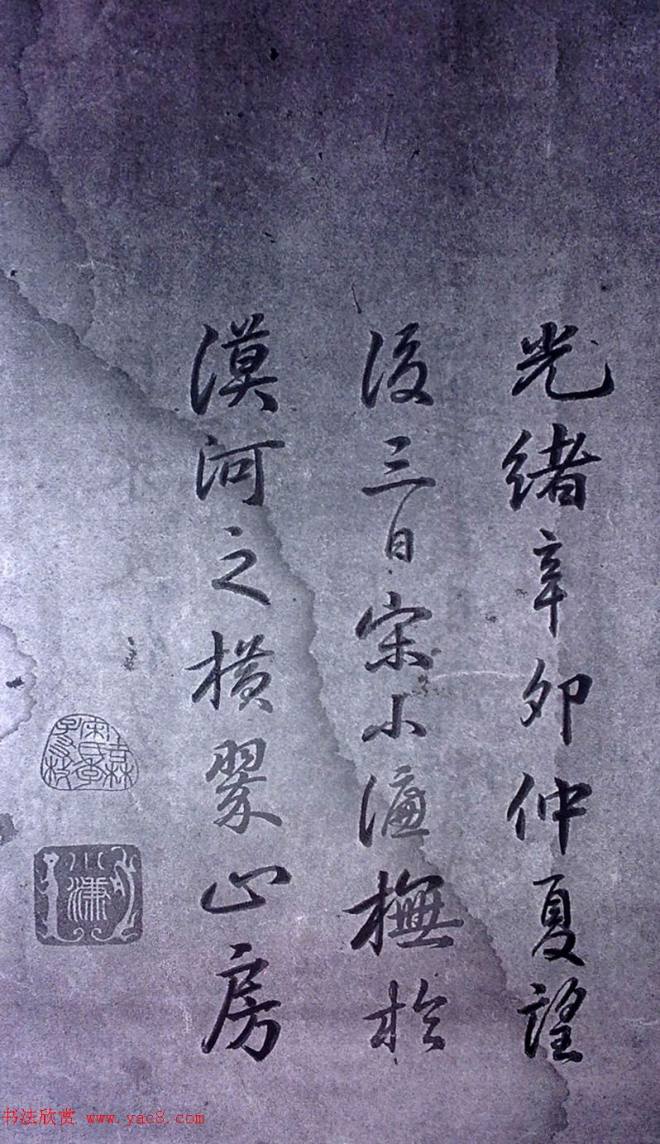 光緒辛卯仲夏望
後三日宋小濂橅於
漠河之橫翠山房
书法欣赏 www.yac8.com